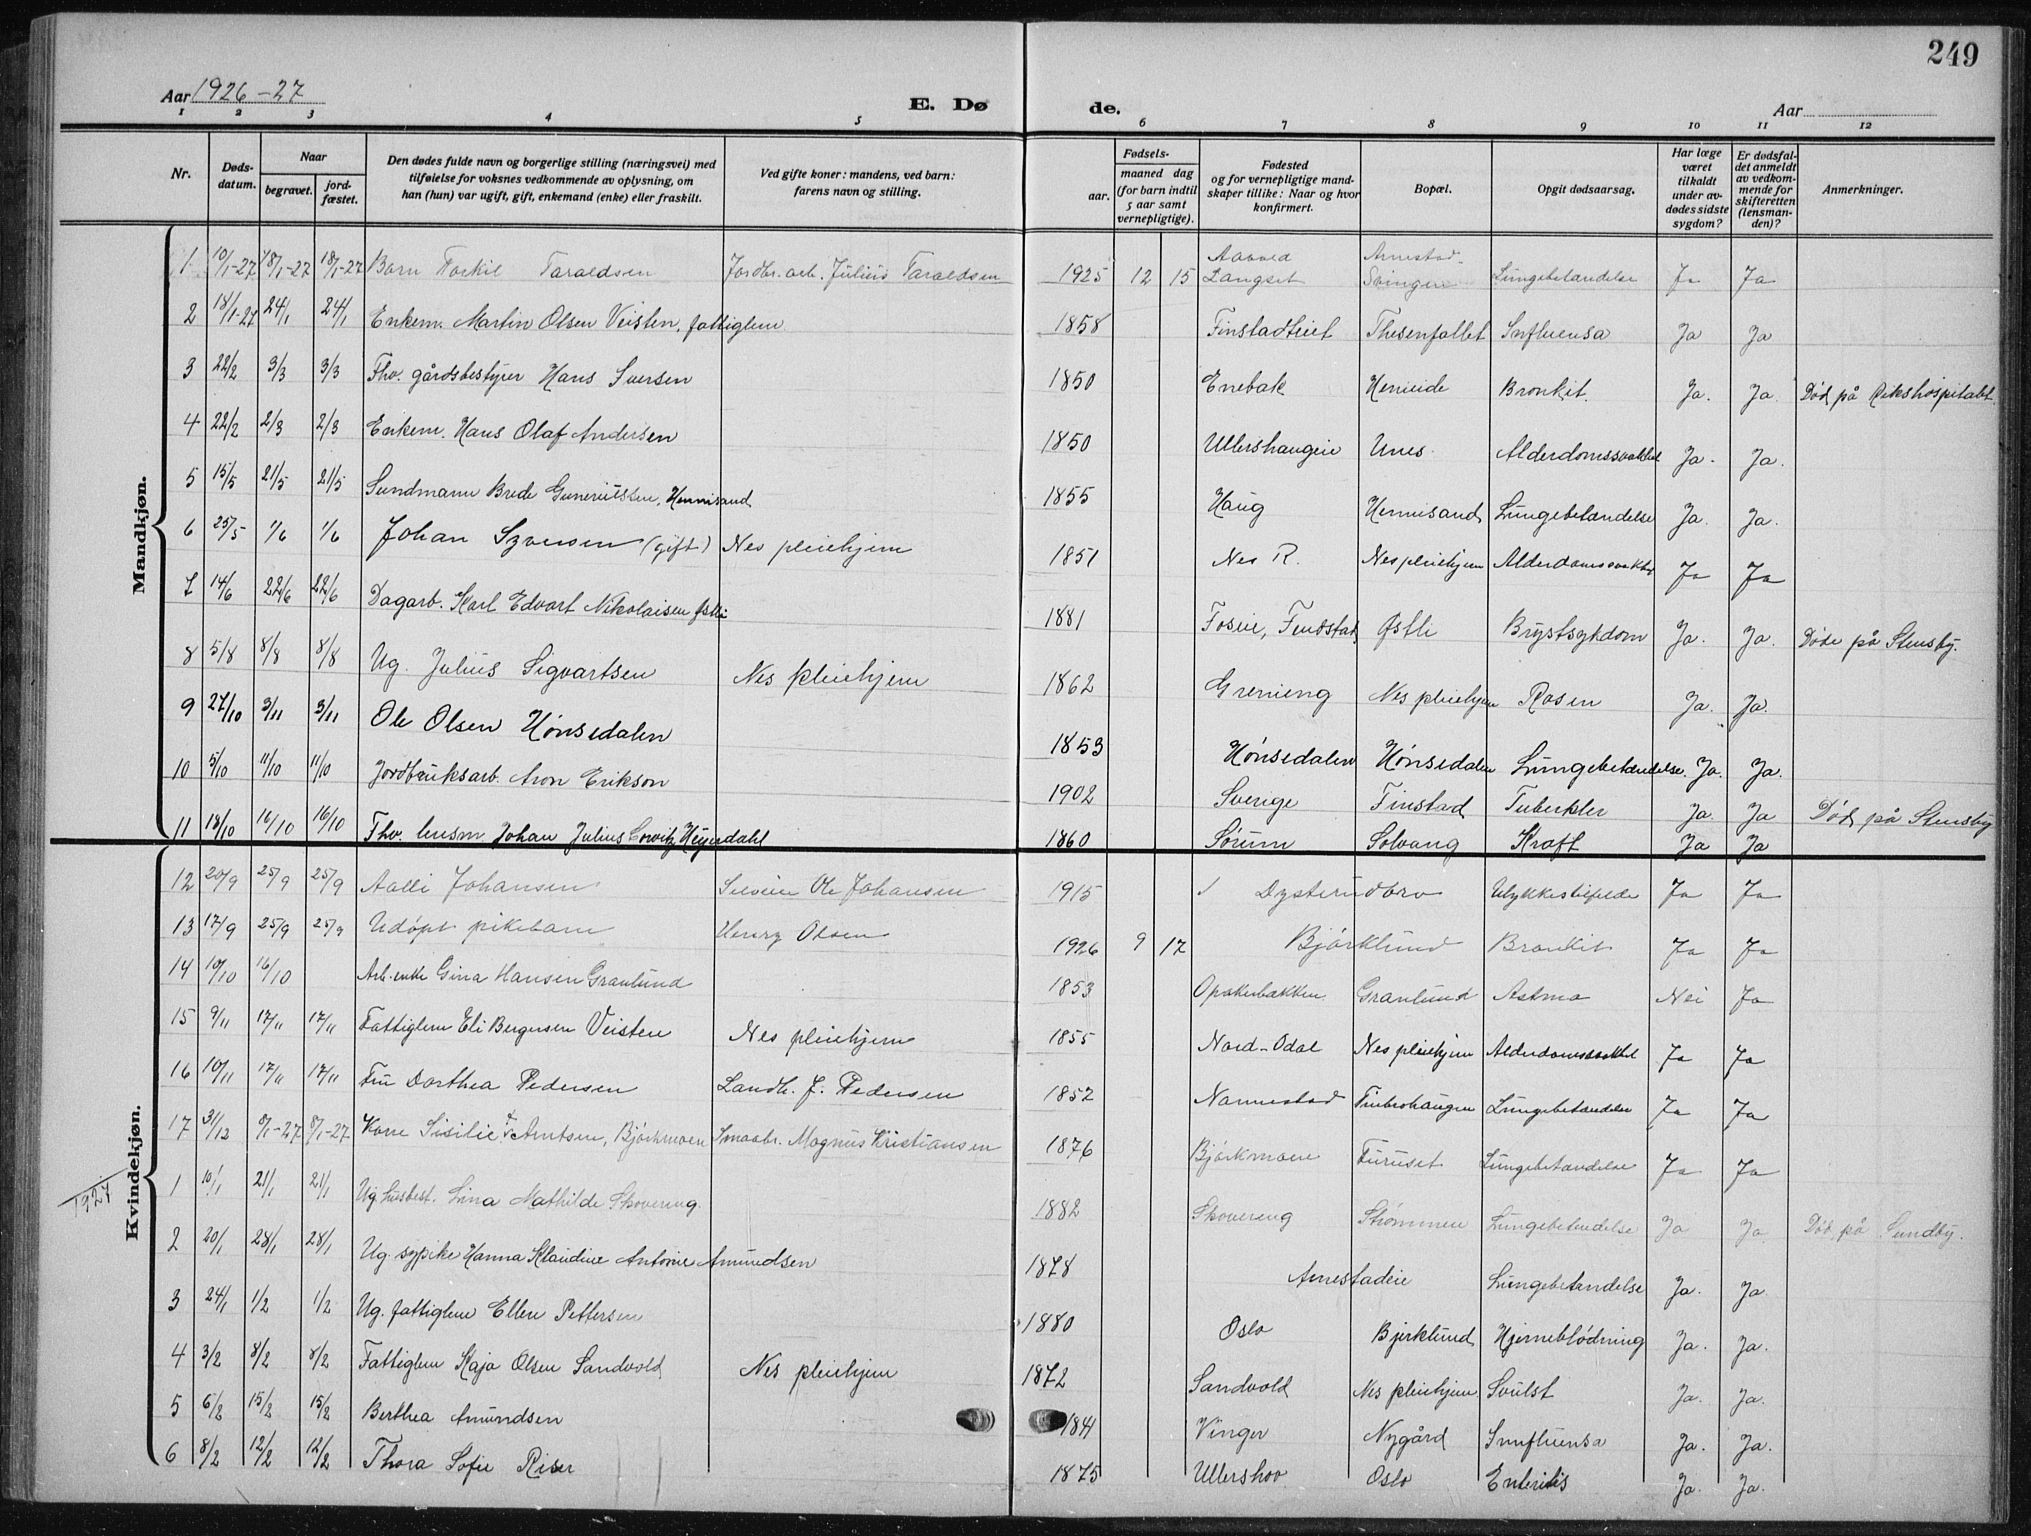 249
Aar 1926-27
E. Dø
de.
Aar
1 2 3 4 5 6 7 8 9 10 11 12
Nr.
Døds-
datum.
Naar
begravet.
jord-
fæstet.
Den dødes fulde navn og borgerlige stilling (næringsvei) med
tilføielse for voksnes vedkommende av oplysning, om
han (hun) var ugift, gift, enkemand (enke) eller fraskilt.
Ved gifte koner: mandens, ved barn:
farens navn og stilling.
Fødsels-
aar.
maaned dag
(for barn indtil
5 aar samt
vernepligtige).
Fødested
og for vernepligtige mand-
skaper tillike: Naar og hvor
konfirmert.
Bopæl.
Opgit dødsaarsag.
Har læge
været
tilkaldt
under av-
dødes sidste
sygdom?
Er dødsfal-
det anmeldt
av vedkom-
mende for
skifteretten
(lensman-
den)?
Anmerkninger.
Mandkjøn.
1 10/1-27 18/1-27 18/1-27 Barn Torkil Taraldsen Jordbr.arb. Julius Taraldsen 1925 12 15 Langset Svingen Lungebetændelse Ja Ja
2 18/1-27 24/1 24/1 Enkem. Martin Olsen Veisten, fattiglem 1858 Finstadteiet Thesenfallet Influensa Ja Ja
3 22/2 3/3 3/3 Fhv. gårdsbestyrer Hans Iversen 1850 Enebak Henieide Bronkit. Ja. Ja. Død på Rikshospitalet.
4 22/2 2/3 2/3 Enkem. Hans Olaf Andersen 1850 Ullershaugeie Unes. Alderdomssvakhet Ja. Ja.
5 15/5 21/5 21/5 Sundmann Brede Guneriussen, Hennisand 1855 Haug Hennisand Lungebetændelse Ja. Ja.
6 25/5 1/6 1/6 Johan Syversen (gift) Nes pleiehjem 1851 Nes R. Nes pleiehjem Alderdomssvakhet Ja Ja
7 14/6 22/6 22/6 Dagarb. Karl Edvart Nikolaisen Østli 1881 Foseie, Fendstad Østli Brystsykdom Ja. Ja. Døde på Stensby.
8 5/8 8/8 8/8 Ug. Julius Sigvartsen Nes pleiehjem 1862 Grenieng Nes pleiehjem Rosen Ja. Ja.
9 27/10 3/11 3/11 Ole Olsen Hønsedalen 1853 Hønsedalen Hønsedalen Lungebetændelse. Ja. Ja.
10 5/10 11/10 11/10 Jordbruksarb. Aron Erikson 1902 Sverige Finstad Tuberkler Ja Ja Død på Stensby
11 18/10 16/10 16/10 Fhv. lensm. Johan Julius Corvitz Heyerdahl 1860 Sørum Solvang Kræft Ja Ja
Kvindekjøn.
12 20/9 25/9 25/9 Aalli Johansen Sveiser Ole Johansen 1915 Dysterudbro Ulykkestilfelde Ja Ja
13 17/9 25/9 25/9 Udøpt pikebarn Henry Olsen 1926 9 17 Bjørklund Bronkit Ja Ja
14 10/10 16/10 Arb.enke Gina Hansen Granlund 1853 Opakerbakken Granlund Astma Nei Ja
15 9/11 17/11 17/11 Fattiglem Eli Bergersen Veisten Nes pleiehjem 1855 Nord-Odal Nes pleiehjem Alderdomssvakhet Ja Ja
16 10/11 17/11 17/11 Fru Dorthea Pedersen Landh. J. Pedersen 1852 Nannestad Finbrohaugen Lungebetændelse Ja Ja
17 31/12 8/1-27 8/1-27 Kone Sisilie Arntsen, Bjørkmoen Smaabr. Magnus Kristiansen 1876 Bjørkmoen Furuset Lungebetændelse Ja Ja
1927
1 10/1 21/1 21/1 Ug husbest. Lina Mathilde Skovereng. 1882 Skovereng Strømmen Lungebetændelse Ja Ja Død på Sundby.
2 20/1 28/1 28/1 Ug. sypike Hanna Klaudine Antonie Amundsen 1878 Arnestadeie Lungebetændelse Ja. Ja
3 24/1 1/2 1/2 Ug. fattiglem Ellen Pettersen 1880 Oslo Bjerklund Hjerneblødning Ja. Ja.
4 3/2 8/2 8/2 Fattiglem Kaja Olsen Sandvold Nes pleiehjem 1872 Sandvold Nes pleiehjem Svulst Ja. Ja.
5 6/2 15/2 15/2 Berthea Amundsen 1841 Vinger Nygård Innfluensa Ja. Ja.
6 8/2 12/2 12/2 Thora Sofie Riser 1875 Ullershov Oslo Enteritis Ja. Ja.